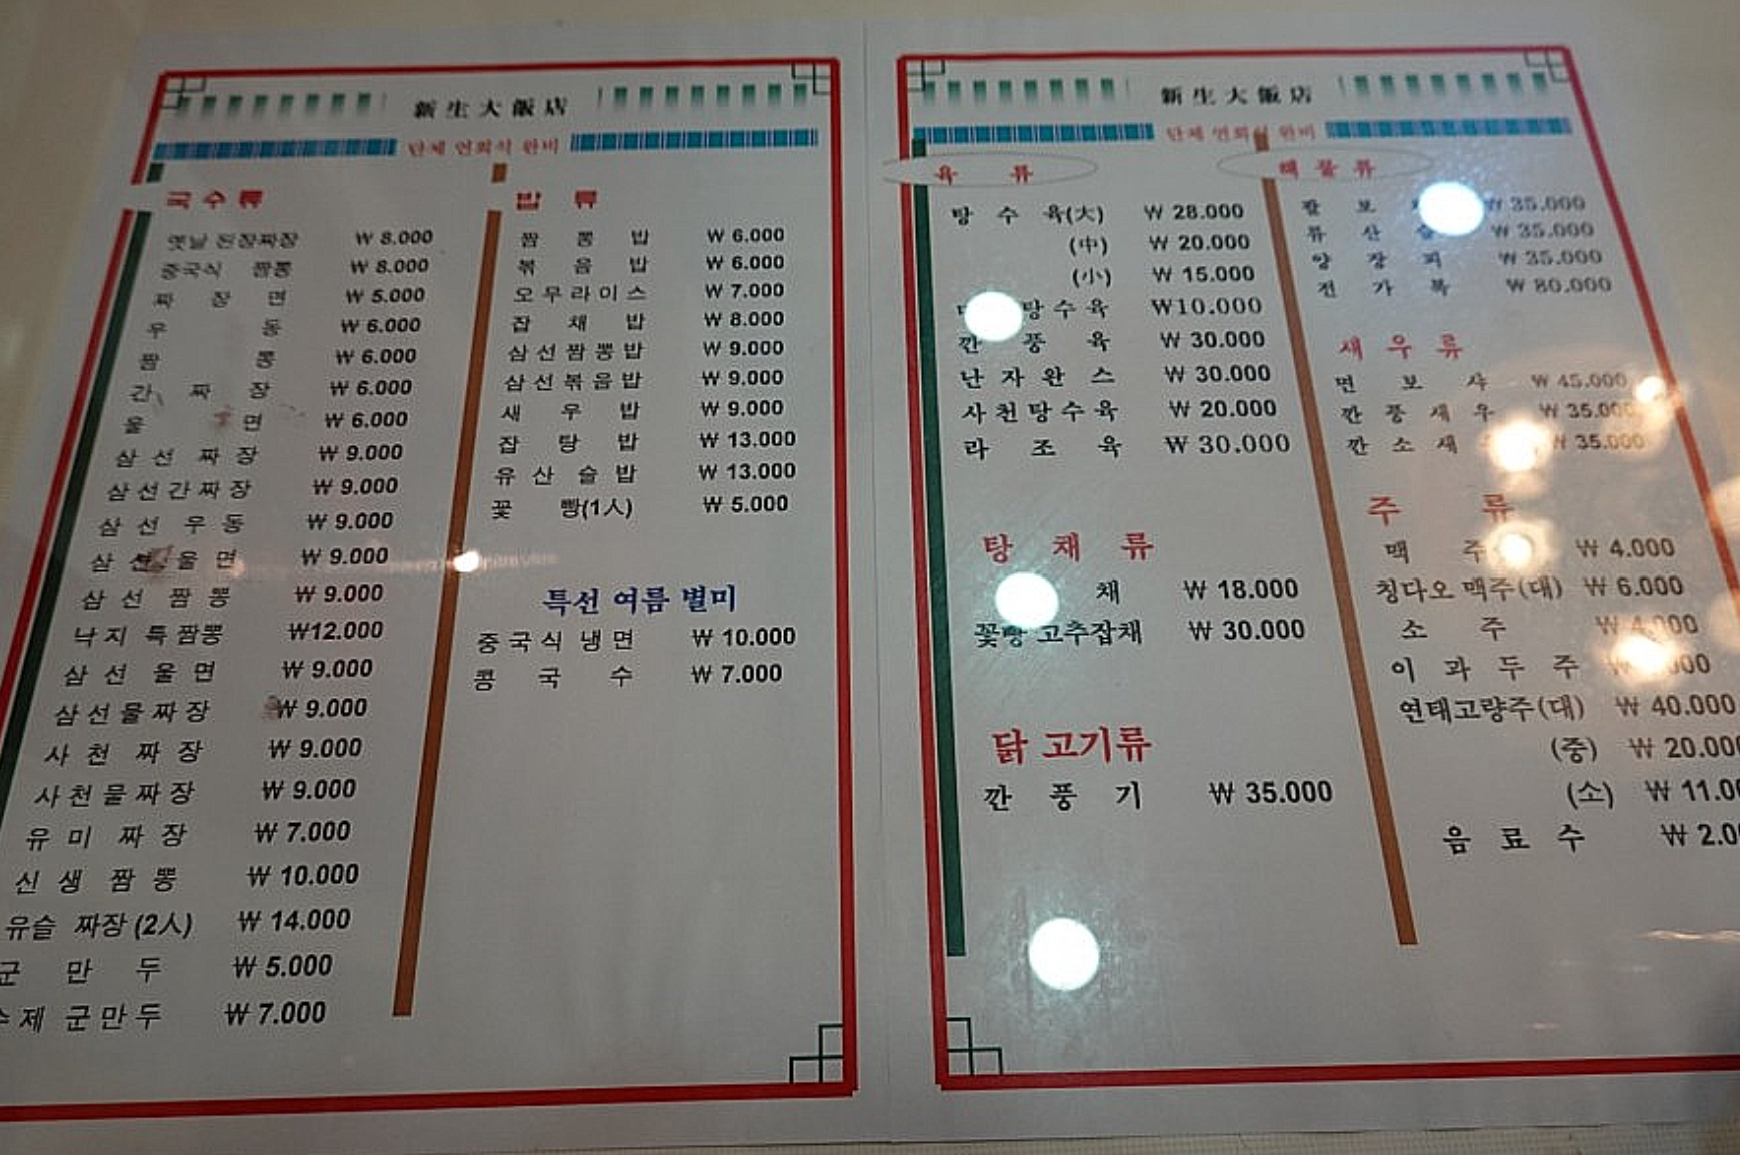 新生大飯店
단체 연회석 완비
국수류
옛날 된장짜장 ₩ 8.000
중국식 짬뽕 ₩ 8.000
짜장면 ₩ 5.000
우동 ₩ 6.000
짬뽕 ₩ 6.000
간짜장 ₩ 6.000
울면 ₩ 6.000
삼선짜장 ₩ 9.000
삼선간짜장 ₩ 9.000
삼선우동 ₩ 9.000
삼선울면 ₩ 9.000
삼선짬뽕 ₩ 9.000
낙지특짬뽕 ₩12.000
삼선울면 ₩ 9.000
삼선물짜장 ₩ 9.000
사천짜장 ₩ 9.000
사천물짜장 ₩ 9.000
유미짜장 ₩ 7.000
신생짬뽕 ₩ 10.000
유슬 짜장 (2人) ₩ 14.000
군만두 ₩ 5.000
제군만두 ₩ 7.000
밥류
짬뽕밥 ₩ 6.000
볶음밥 ₩ 6.000
오무라이스 ₩ 7.000
잡채밥 ₩ 8.000
삼선짬뽕밥 ₩ 9.000
삼선볶음밥 ₩ 9.000
새우밥 ₩ 9.000
잡탕밥 ₩ 13.000
유산슬밥 ₩ 13.000
꽃빵(1人) ₩ 5.000
특선 여름 별미
중국식냉면 ₩ 10.000
콩국수 ₩ 7.000
新生大飯店
단체 연회석 완비
육류
탕수육(大) ₩ 28.000
(中) ₩ 20.000
(小) ₩ 15.000
탕수육 ₩10.000
깐풍육 ₩ 30.000
난자완스 ₩ 30.000
사천탕수육 ₩ 20.000
라조육 ₩ 30.000
탕채류
채 ₩ 18.000
꽃빵 고추잡채 ₩ 30.000
닭고기류
깐풍기 ₩ 35.000
해물류
팔보 ₩ 35.000
류산슬 ₩ 35.000
양장피 ₩ 35.000
전가복 ₩ 80.000
새우류
면보샤 ₩ 45.000
깐풍새우 ₩ 35.000
깐소새 ₩ 35.000
주류
맥주 ₩ 4.000
칭다오 맥주(대) ₩ 6.000
소주 ₩ 4.000
이과두주
연태고량주(대) ₩ 40.000
(중) ₩ 20.000
(소) ₩ 11.0
음료수 ₩ 2.0